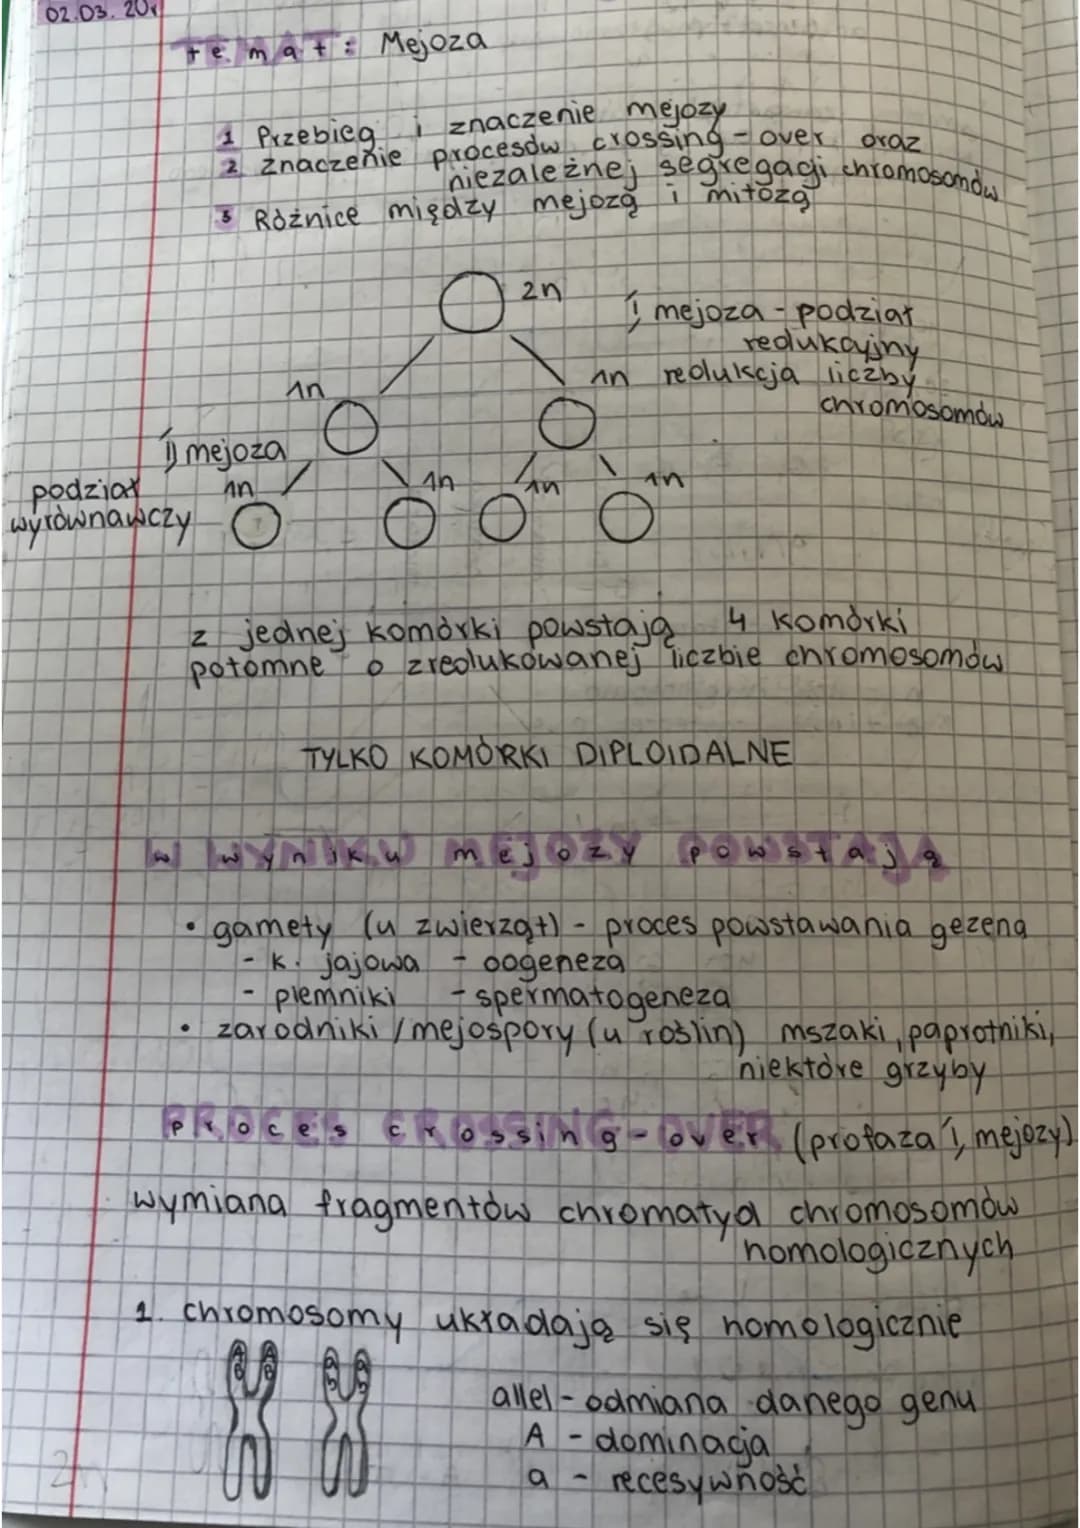 02.03.
temat: Mejoza
1 Przebieg i znaczenie mejozy
2 znaczenie procesów crossing-over oraz
niezależnej segregacji chromosomów
3 Różnice między mejozą i mitozą
2n
I, mejoza - podział
redukcyjny
1n
1n redukcja liczby
chromosomów
II mejoza
podział
wyrównawczy
1n
1n
1n
1n
z jednej komórki powstają 4 komórki
potomne o zredukowanej liczbie chromosomów
TYLKO KOMÓRKI DIPLOIDALNE
W wyniku mejozy powstają
• gamety (u zwierząt) - proces powstawania gezena
- k. jajowa - oogeneza
- plemniki - spermatogeneza
• zarodniki / mejospory (u roślin) mszaki, paprotniki,
niektóre grzyby
proces crossing-over (profaza I, mejozy)
wymiana fragmentów chromatyd chromosomów
homologicznych
1. chromosomy układają się homologicznie
A A a a
B B b b
allel - odmiana danego genu
A - dominacja
a - recesywność
2n